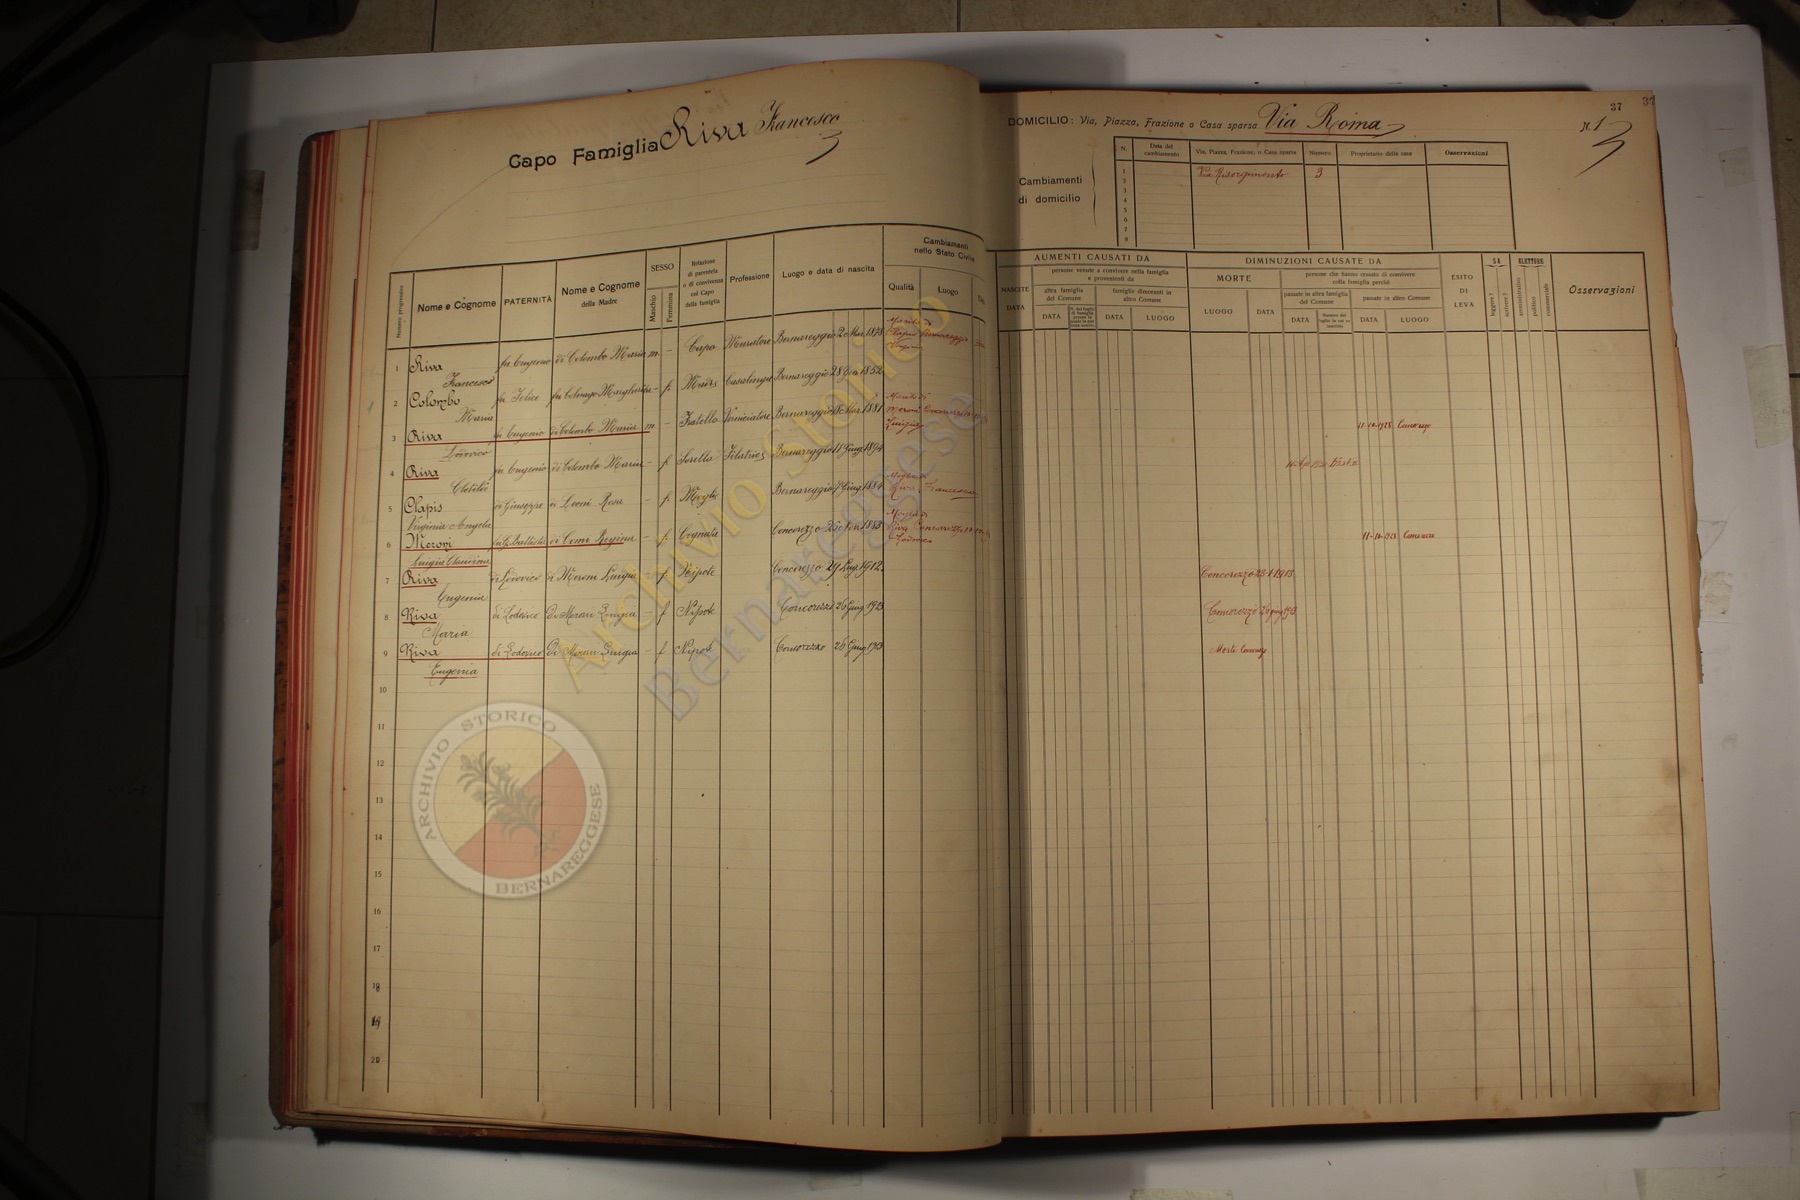 37 37
Capo Famiglia Riva Francesco
DOMICILIO: Via, Piazza, Frazione o Casa sparsa Via Roma N. 1
Cambiamenti
di domicilio
N. Data del cambiamento Via, Piazza, Frazione, o Casa sparsa Numero Proprietario della casa Osservazioni
1 Via Risorgimento 3
2
3
4
5
6
7
8
Numero progressivo
Nome e Cognome
PATERNITÀ
Nome e Cognome
della Madre
SESSO
Maschio
Femmina
Relazione
di parentela
o di convivenza
col Capo
della famiglia
Professione
Luogo e data di nascita
Cambiamenti
nello Stato Civile
Qualità
Luogo
AUMENTI CAUSATI DA
NASCITE
DATA
persone venute a convivere nella famiglia
e provenienti da
altra famiglia
del Comune
DATA
famiglie dimoranti in
altro Comune
DATA LUOGO
DIMINUZIONI CAUSATE DA
MORTE
LUOGO DATA
persone che hanno cessato di convivere
colla famiglia perchè
passate in altra famiglia
del Comune
DATA
passate in altro Comune
DATA LUOGO
ESITO
DI
LEVA
SA
leggere?
scrivere?
ELETTORE
amministrativo
politico
commerciale
Osservazioni
1 Riva fu Eugenio di Colombo Maria m. - Capo Muratore Bernareggio 2 Mar. 1878 Marito di
Francesco Clapis Bernareggio
Virginia
2 Colombo fu Felice fu Colnago Margherita - f. Madre Casalinga Bernareggio 28 1852
Maria
3 Riva fu Eugenio di Colombo Maria m - Fratello Verniciatore Bernareggio 18 Mar. 1881 Marito di
Lodovico Moroni Concorezzo
Luigia
11-10-1928
4 Riva fu Eugenio di Colombo Maria - f. Sorella Filatrice Bernareggio 11 Giug. 1894
Clotilde
5 Clapis di Giuseppe di Leoni Rosa - f. Moglie Bernareggio 7 Giug. 1884 Moglie di
Virginia Angela Riva Francesco
6 Moroni fu G. Battista di Regina - f. Cognata Concorezzo 26 1883 Moglie di
Luigia Claudina Riva Concorezzo
Lodovico
11-10-1928
7 Riva di Lodovico di Moroni Luigia - f Nipote Concorezzo 29 Lug. 1912 Concorezzo 28-1-1913
Eugenia
8 Riva di Lodovico Di Moroni Luigia - f Nipote Concorezzo 26 Giug 1913 Concorezzo 26 giug 1913
Maria
9 Riva di Lodovico Di Moroni Luigia - f Nipote Concorezzo 26 Giug 1913
Eugenia
10
11
12
13
14
15
16
17
18
19
20
Archivio Storico
Bernareggese
ARCHIVIO STORICO
BERNAREGGESE